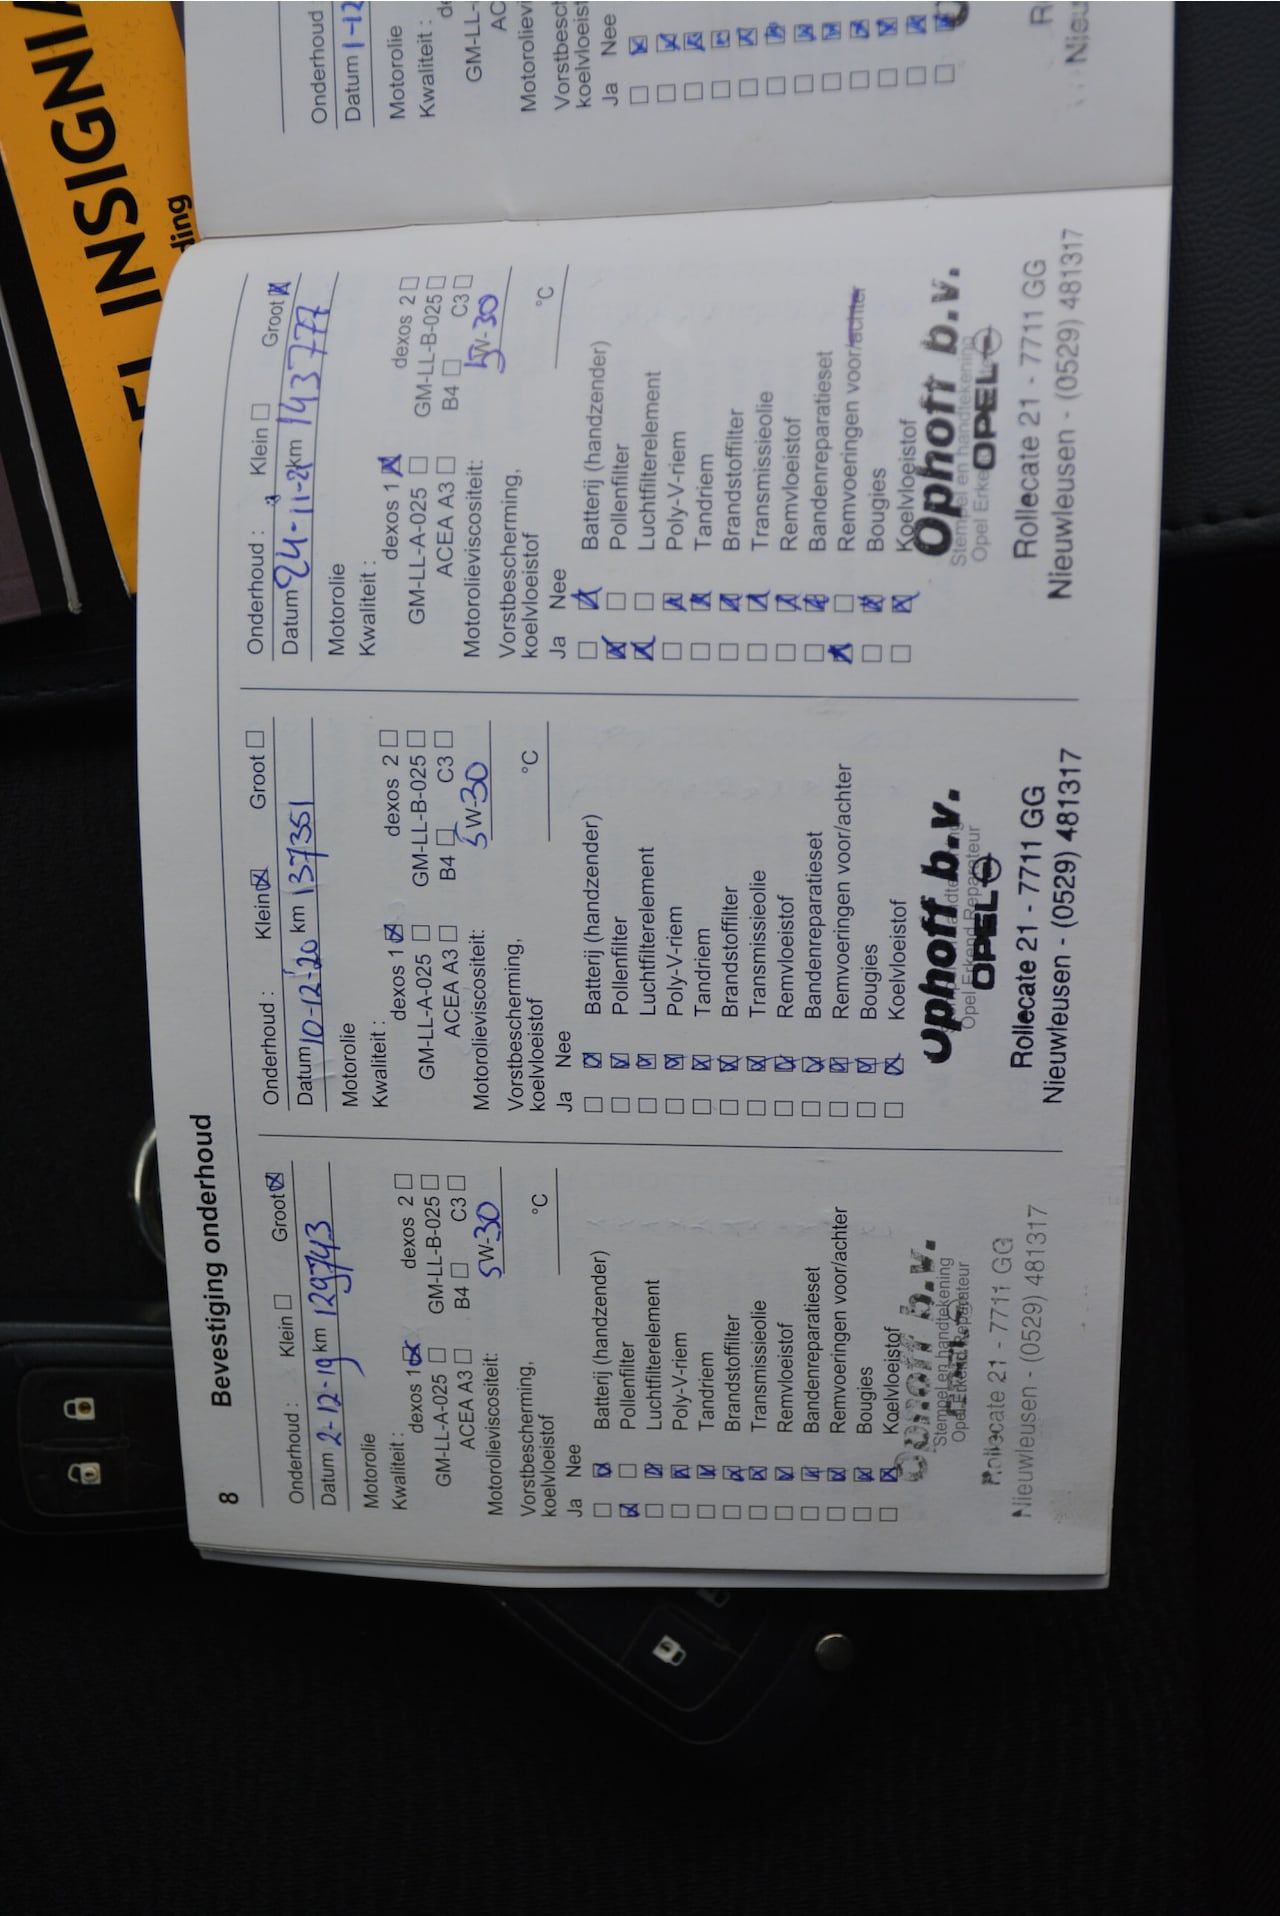 INSIGNIA
ding
8 Bevestiging onderhoud
Onderhoud : Klein ☐ Groot ☒
Datum 2-12-19 km 129743
Motorolie
Kwaliteit :
dexos 1 ☒ dexos 2 ☐
GM-LL-A-025 ☐ GM-LL-B-025 ☐
ACEA A3 ☐ B4 ☐ C3 ☐
Motorolieviscositeit: 5W-30
Vorstbescherming,
koelvloeistof °C
Ja Nee
☐ ☒ Batterij (handzender)
☒ ☐ Pollenfilter
☐ ☒ Luchtfilterelement
☐ ☒ Poly-V-riem
☐ ☒ Tandriem
☐ ☒ Brandstoffilter
☐ ☒ Transmissieolie
☐ ☒ Remvloeistof
☐ ☒ Bandenreparatieset
☐ ☒ Remvoeringen voor/achter
☐ ☒ Bougies
☐ ☒ Koelvloeistof
Ophoff b.v.
Stempel en handtekening
Opel Erkend Reparateur
Rollecate 21 - 7711 GG
Nieuwleusen - (0529) 481317
Onderhoud : Klein ☒ Groot ☐
Datum 10-12-'20 km 137351
Motorolie
Kwaliteit :
dexos 1 ☒ dexos 2 ☐
GM-LL-A-025 ☐ GM-LL-B-025 ☐
ACEA A3 ☐ B4 ☐ C3 ☐
Motorolieviscositeit: 5W-30
Vorstbescherming,
koelvloeistof °C
Ja Nee
☐ ☒ Batterij (handzender)
☐ ☒ Pollenfilter
☐ ☒ Luchtfilterelement
☐ ☒ Poly-V-riem
☐ ☒ Tandriem
☐ ☒ Brandstoffilter
☐ ☒ Transmissieolie
☐ ☒ Remvloeistof
☐ ☒ Bandenreparatieset
☐ ☒ Remvoeringen voor/achter
☐ ☒ Bougies
☐ ☒ Koelvloeistof
Ophoff b.v.
Opel Erkend Reparateur
OPEL
Rollecate 21 - 7711 GG
Nieuwleusen - (0529) 481317
Onderhoud : Klein ☐ Groot ☒
Datum 24-11-21 km 143777
Motorolie
Kwaliteit :
dexos 1 ☒ dexos 2 ☐
GM-LL-A-025 ☐ GM-LL-B-025 ☐
ACEA A3 ☐ B4 ☐ C3 ☐
Motorolieviscositeit: 5W-30
Vorstbescherming,
koelvloeistof °C
Ja Nee
☐ ☒ Batterij (handzender)
☒ ☐ Pollenfilter
☒ ☐ Luchtfilterelement
☐ ☒ Poly-V-riem
☐ ☒ Tandriem
☐ ☒ Brandstoffilter
☐ ☒ Transmissieolie
☐ ☒ Remvloeistof
☐ ☒ Bandenreparatieset
☒ ☐ Remvoeringen voor/achter
☐ ☒ Bougies
☐ ☒ Koelvloeistof
Ophoff b.v.
Stempel en handtekening
OPEL
Rollecate 21 - 7711 GG
Nieuwleusen - (0529) 481317
Onderhoud
Datum 1-12
Motorolie
Kwaliteit :
GM-LL-
Motorolievi
Vorstbesch
koelvloeist
Ja Nee